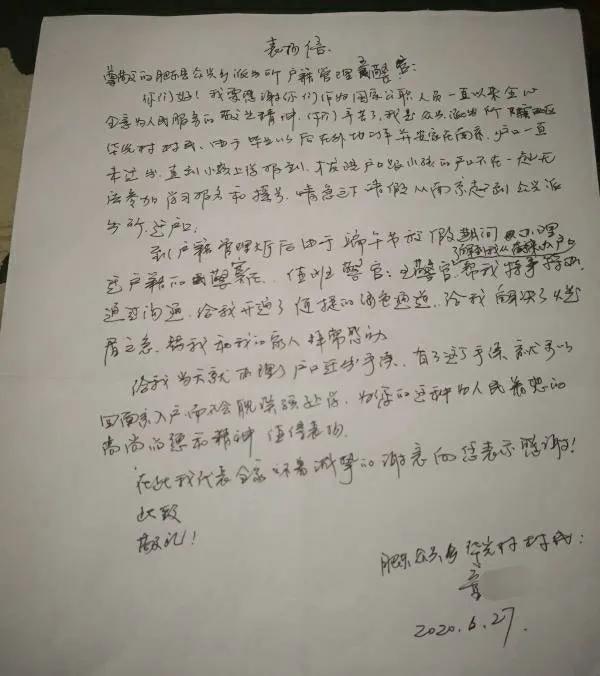 表扬信
尊敬的肥东县众兴乡派出所户籍管理 警官:
你们好! 我要感谢你们作为国家公职人员一直以来全心
全意为人民服务的 精神, 你们辛苦了, 我是众兴派出所
华光村村民, 由于毕业以后在外地工作并安家在南京, 户口一直
未迁出, 直到小孩上学报到, 才发现户口跟小孩的户口不在一起, 无
法参加学习报名和摇号, 情急之下请假从南京赶到众兴派
出所迁户口,
到户籍管理大厅后由于端午节放假期间 办理
迁户籍的 值班警官: 王警官, 帮我特事特办,
了解到我从南京 户口
通过沟通, 给我开通了便捷的绿色通道, 给我解决了燃
眉之急, 替我和我的家人非常感动
给我当天就办理了户口迁出手续, 有了这个手续就可以
回南京入户 为您的这种为人民着想的
高尚品德和精神值得表扬.
在此我代表全家怀着诚挚的谢意向您表示感谢!
此致
敬礼!
肥东众兴乡华光村村民:
章
2020.6.27